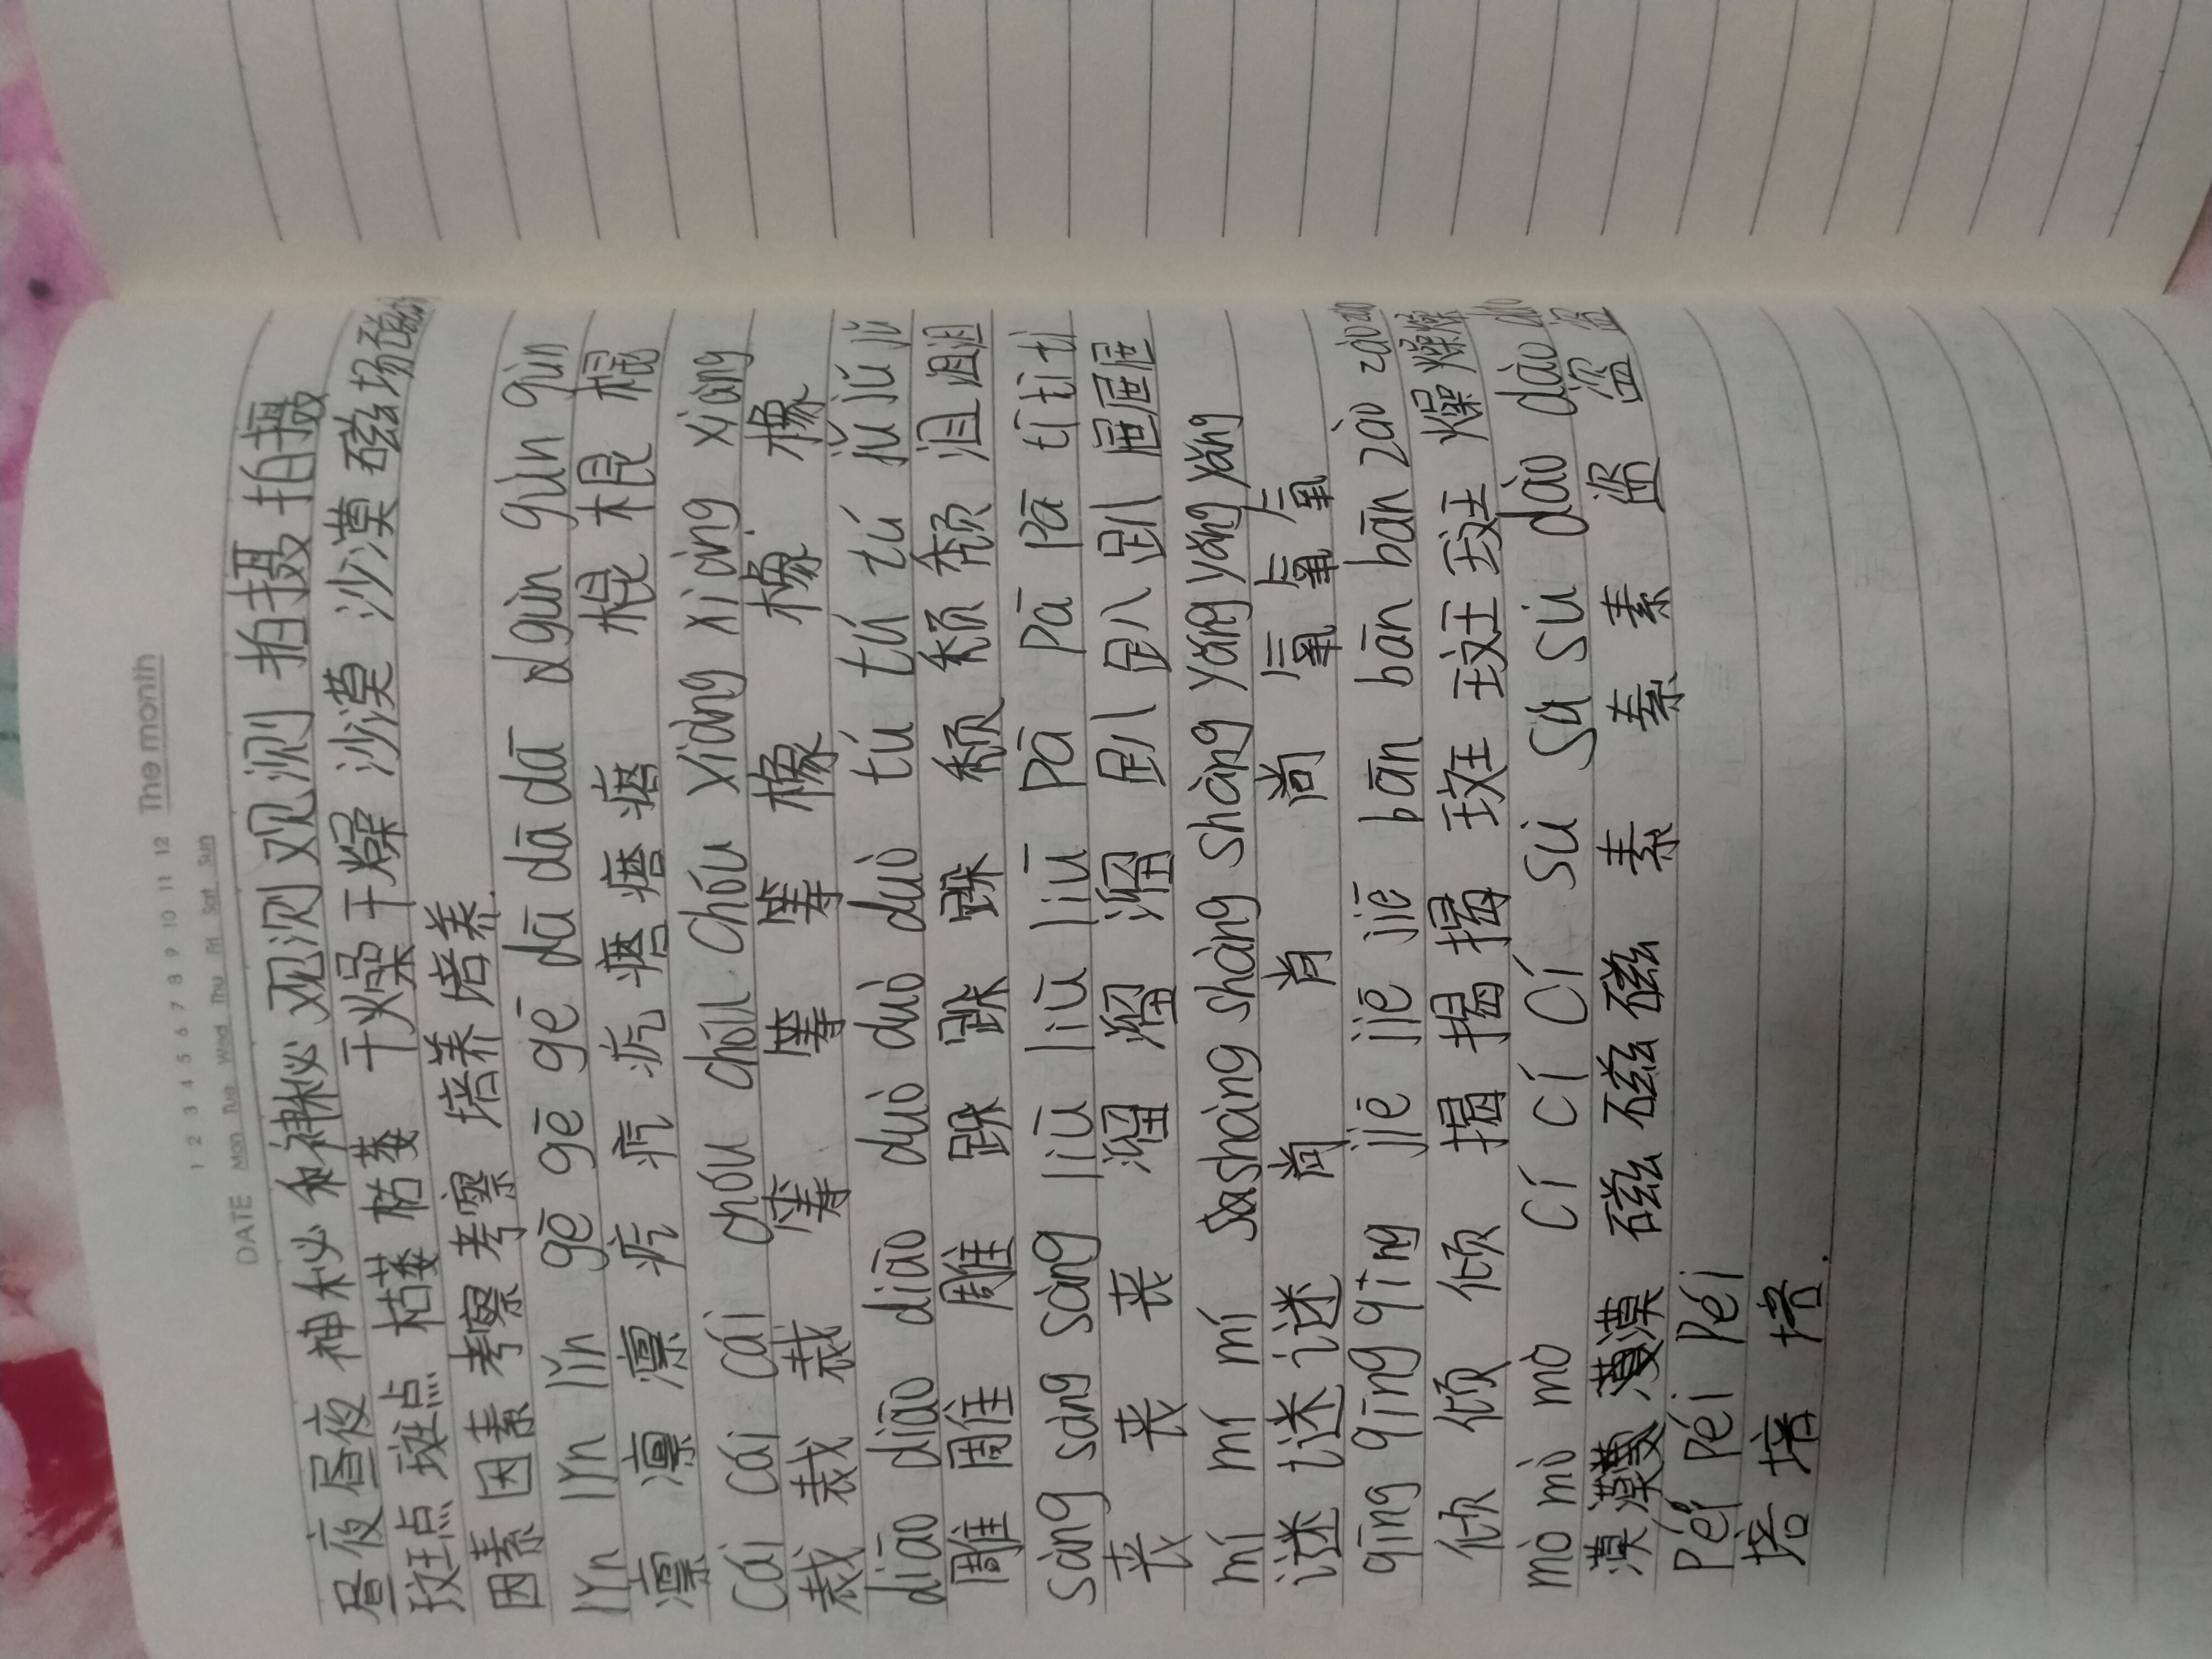 1 2 3 4 5 6 7 8 9 10 11 12 The month
DATE Mon Tue Wed Thu Fri Sat Sun
昼夜昼夜 神秘 神秘 观测观测 拍摄拍摄
斑点斑点 枯萎枯萎 干燥干燥 沙漠 沙漠 磁场磁场
因素因素 考察考察 培养培养.
lǐn lǐn lǐn gē gē gē dā dā dā d gùn gùn gùn
凛 凛 凛 疙 疙 疙 瘩 瘩 瘩 棍 棍 棍
cái cái cái chóu chóu chóu xiàng xiàng xiàng
裁 裁 裁 筹 筹 筹 橡 橡 橡
diāo diāo diāo duò duò duò tú tú tú jǔ jǔ jǔ
雕 雕 雕 跺 跺 跺 颓 颓 颓 沮 沮 沮
sàng sàng sàng liū liū liū pā pā pā tì tì tì
丧 丧 丧 溜 溜 溜 趴 趴 趴 屉 屉 屉
mí mí mí shàng shàng shàng yǎng yǎng yǎng
谜 谜 谜 尚 尚 尚 氧 氧 氧
qīng qīng qīng jiē jiē jiē bān bān bān zào zào zào
倾 倾 倾 揭 揭 揭 斑 斑 斑 燥 燥 燥
mò mò mò cí cí cí sù sù sù dào dào dào
漠 漠 漠 磁 磁 磁 素 素 素 盗 盗 盗
péi péi péi
培 培 培.